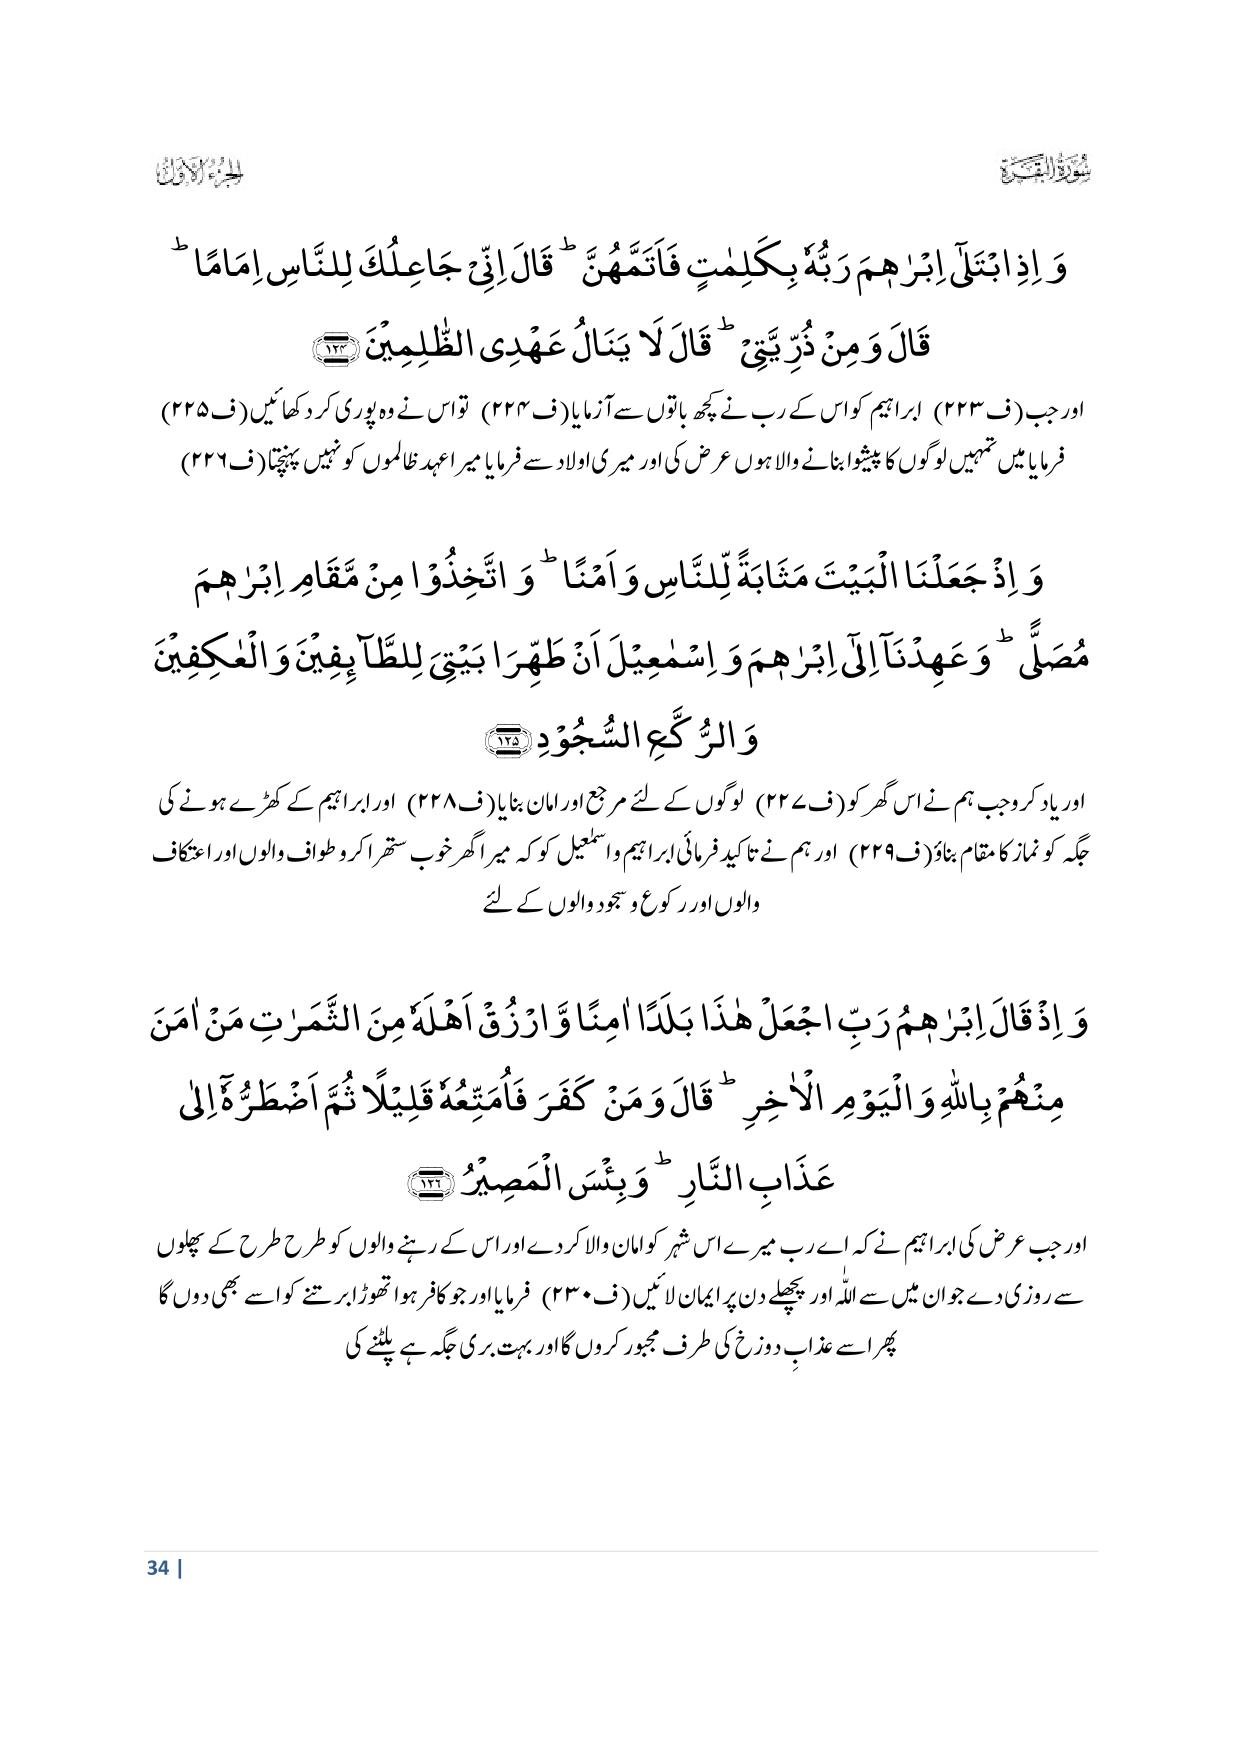 سُوْرَةُ الْبَقَرَة
الْجُزْءُ الْاَوَّلُ
وَ اِذِ ابْتَلٰۤی اِبْرٰهٖمَ رَبُّهٗ بِكَلِمٰتٍ فَاَتَمَّهُنَّ ؕ قَالَ اِنِّیْ جَاعِلُكَ لِلنَّاسِ اِمَامًا ؕ
قَالَ وَ مِنْ ذُرِّیَّتِیْ ؕ قَالَ لَا یَنَالُ عَهْدِی الظّٰلِمِیْنَ ﴿۱۲۴﴾
اور جب (ف۲۲۳) ابراہیم کو اس کے رب نے کچھ باتوں سے آزمایا (ف۲۲۴) تو اس نے وہ پوری کر دکھائیں (ف۲۲۵)
فرمایا میں تمہیں لوگوں کا پیشوا بنانے والا ہوں عرض کی اور میری اولاد سے فرمایا میرا عہد ظالموں کو نہیں پہنچتا (ف۲۲۶)
وَ اِذْ جَعَلْنَا الْبَیْتَ مَثَابَةً لِّلنَّاسِ وَ اَمْنًا ؕ وَ اتَّخِذُوْا مِنْ مَّقَامِ اِبْرٰهٖمَ
مُصَلًّی ؕ وَ عَهِدْنَاۤ اِلٰۤی اِبْرٰهٖمَ وَ اِسْمٰعِیْلَ اَنْ طَهِّرَا بَیْتِیَ لِلطَّآىِٕفِیْنَ وَ الْعٰكِفِیْنَ
وَ الرُّكَّعِ السُّجُوْدِ ﴿۱۲۵﴾
اور یاد کرو جب ہم نے اس گھر کو (ف۲۲۷) لوگوں کے لئے مرجع اور امان بنایا (ف۲۲۸) اور ابراہیم کے کھڑے ہونے کی
جگہ کو نماز کا مقام بناؤ (ف۲۲۹) اور ہم نے تاکید فرمائی ابراہیم و اسمٰعیل کو کہ میرا گھر خوب ستھرا کرو طواف والوں اور اعتکاف
والوں اور رکوع و سجود والوں کے لئے
وَ اِذْ قَالَ اِبْرٰهٖمُ رَبِّ اجْعَلْ هٰذَا بَلَدًا اٰمِنًا وَّ ارْزُقْ اَهْلَهٗ مِنَ الثَّمَرٰتِ مَنْ اٰمَنَ
مِنْهُمْ بِاللّٰهِ وَ الْیَوْمِ الْاٰخِرِ ؕ قَالَ وَ مَنْ كَفَرَ فَاُمَتِّعُهٗ قَلِیْلًا ثُمَّ اَضْطَرُّهٗۤ اِلٰی
عَذَابِ النَّارِ ؕ وَ بِئْسَ الْمَصِیْرُ ﴿۱۲۶﴾
اور جب عرض کی ابراہیم نے کہ اے رب میرے اس شہر کو امان والا کر دے اور اس کے رہنے والوں کو طرح طرح کے پھلوں
سے روزی دے جو ان میں سے اللّٰہ اور پچھلے دن پر ایمان لائیں (ف۲۳۰) فرمایا اور جو کافر ہوا تھوڑا برتنے کو اسے بھی دوں گا
پھر اسے عذابِ دوزخ کی طرف مجبور کروں گا اور بہت بری جگہ ہے پلٹنے کی
34 |